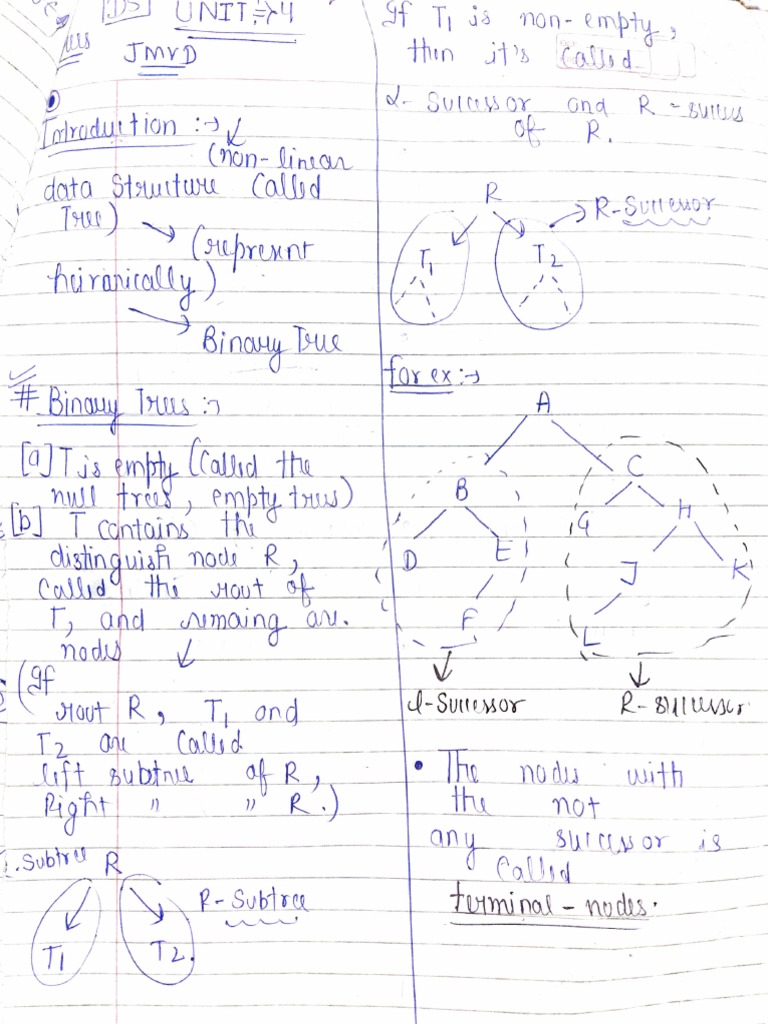 [DS] UNIT:→4
JMVD
Introduction :→
(non-linear
data structure called
Tree)
(represent
heiranically)
Binary Tree
# Binary Trees :→
[a] T is empty (called the
null trees, empty tres)
[b] T contains the
distinguish node R,
called the root of
T, and remaing are.
nodes
(If
root R, T1 and
T2 are called
left subtree of R,
Right " " R.)
L.Subtree R
R-Subtree
T1 T2.
If T1 is non-empty,
then it's called
L- Successor and R-succes
of R.
R
R-Successor
T1 T2
for ex :→
A
B C
D E G H
F J K
L
L-Successor R-successor
• The nodes with
the not
any successor is
called
terminal-nodes.